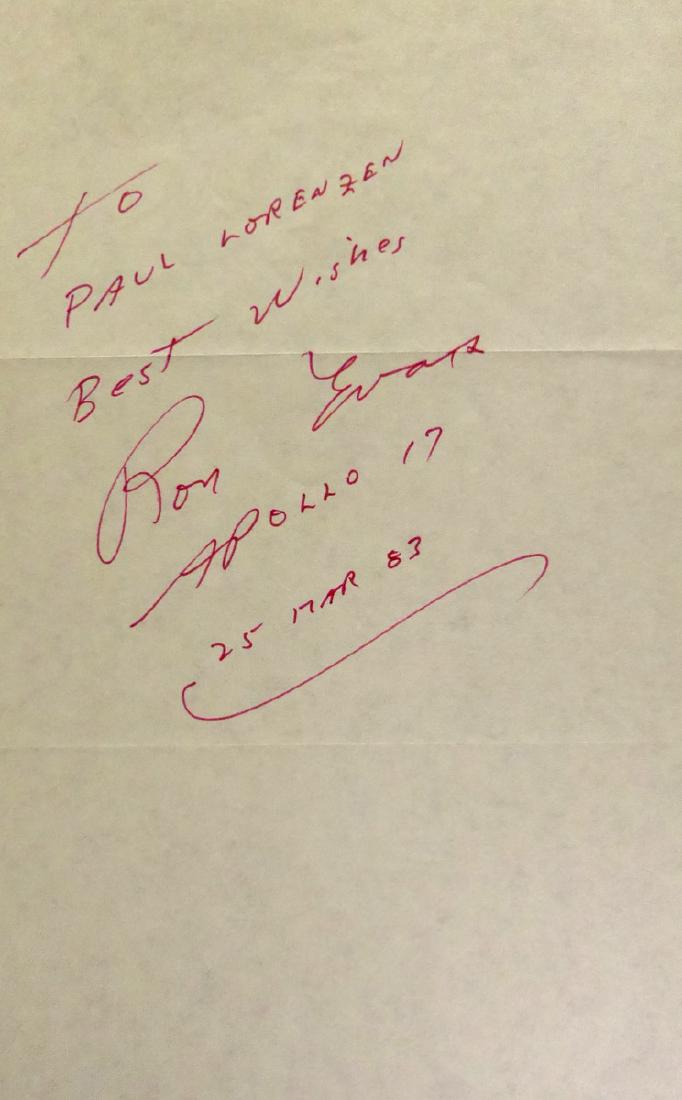 TO
PAUL LORENZEN
Best Wishes
Ron Evans
APOLLO 17
25 MAR 83